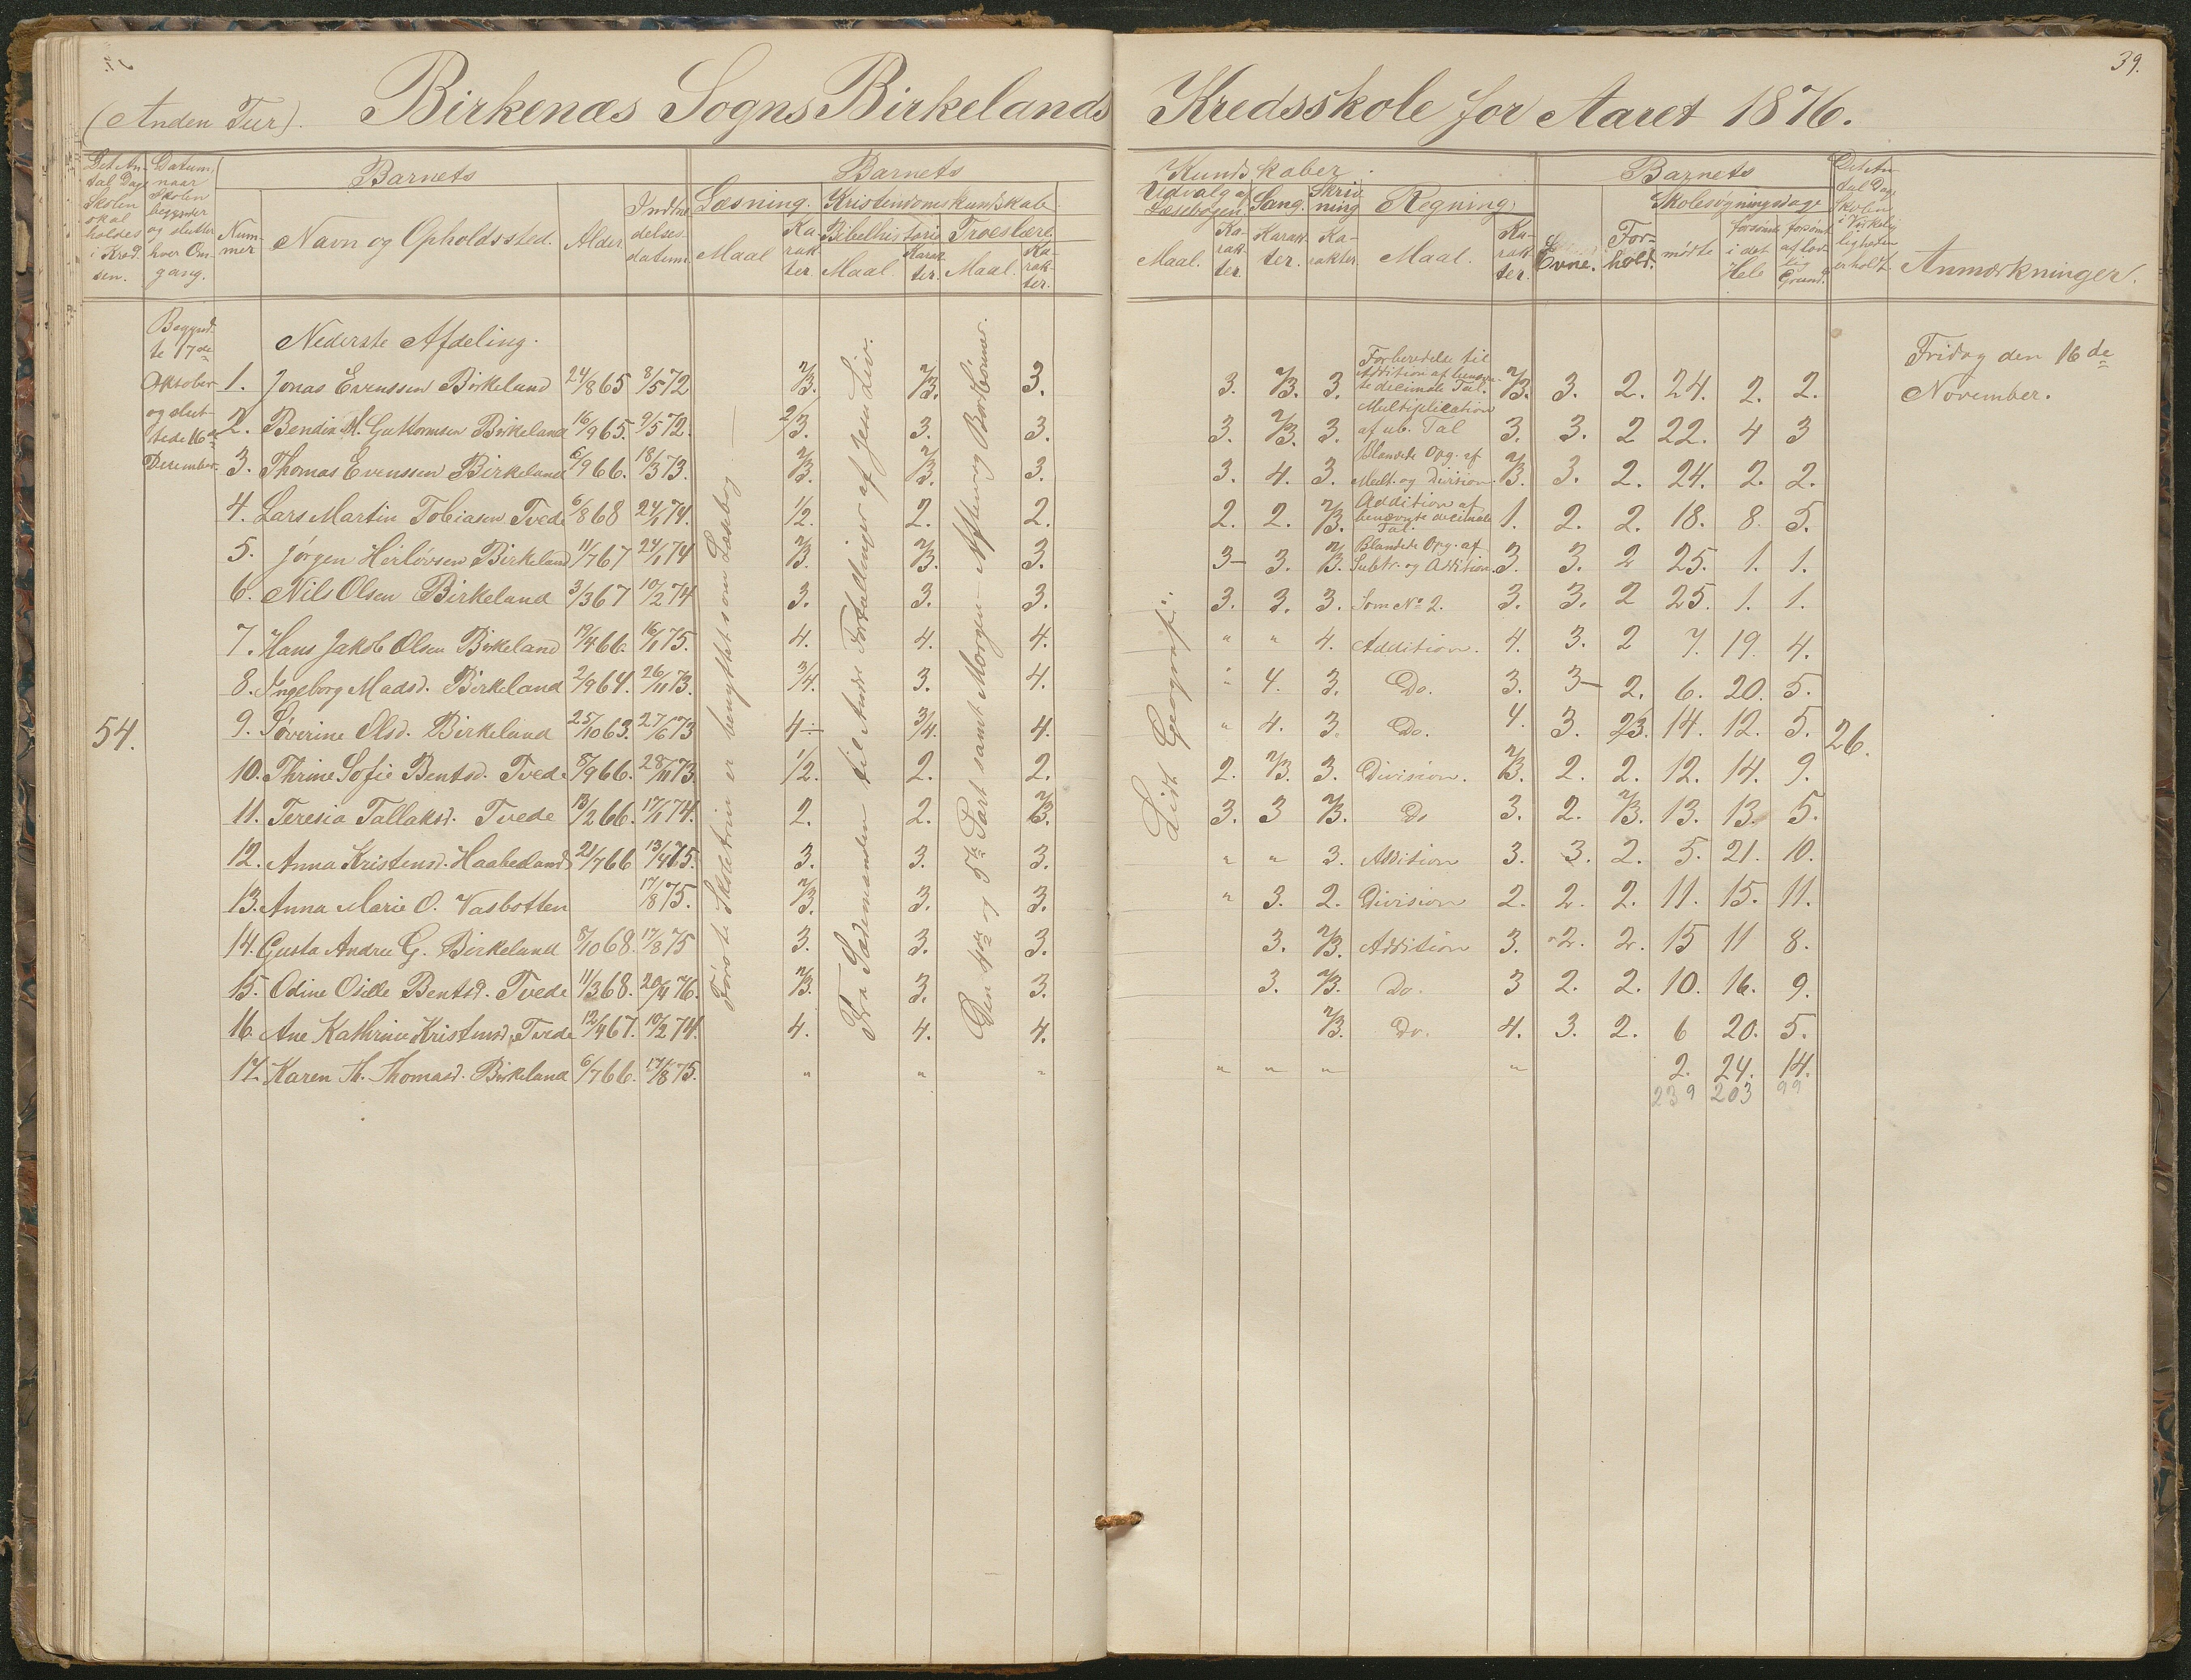 39.
(Anden Tur). Birkenæs Sogns Birkelands Kredsskole for Aaret 1876.
Det An-
tal Dage
Skolen
skal
holdes
i Kred-
sen.
Datum,
naar
Skolen
begynder
og slutter
hver Om-
gang.
Barnets
Num-
mer
Navn og Opholdssted.
Alder.
Indtræ-
delses-
datum.
Barnets
Læsning.
Maal
Ka-
rak-
ter.
Kristendomskundskab.
Bibelhistorie
Maal.
Karak-
ter.
Troeslære.
Maal.
Ka-
rak-
ter.
Kundskaber.
Udvalg af
Læsebogen.
Maal.
Ka-
rak-
ter.
Sang.
Karak-
ter.
Skriv-
ning
Ka-
rakter.
Regning.
Maal.
Ka-
rak-
ter.
Barnets
Evne.
For-
hold.
Skolesøgningsdage
mødte
forsømt
i det
Hele
forsømt
af lov-
lig
Grund.
Det An-
tal Dage
Skolen
i Virke-
ligheden
er holdt
Anmærkninger.
Begynd-
te 17de
Oktober
og slut-
tede 16de
Desember.
54.
Nederste Afdeling.
Første Skoletrin er benyttet som Læsebog.
Fra Sædemanden til Andre Fortællinger af Jesu Liv.
Den 4de og 5te Part samt Morgen- Aften- og Bordbønner.
Lidt Geografi.
26.
Fridag den 16de
November.
1. Jonas Evenssen Birkeland 24/8 65 8/5 72 2/3. 2/3. 3. 3. 2/3. 3. Forberedelse til Addition af benævn-te decimale Tal. 2/3. 3. 2. 24. 2. 2.
2. Bendix M. Guttormsen Birkeland 16/9 65. 9/5 72. 2/3. 3. 3. 3. 2/3. 3. Multiplication af ub. Tal 3. 3. 2 22. 4 3
3. Thomas Evenssen Birkeland 6/9 66. 18/3 73. 2/3. 2/3. 3. 3. 4. 3. Blandede Opg. af Mult. og Division. 2/3. 3. 2. 24. 2. 2.
4. Lars Martin Tobiasen Tvede 6/8 68 24/1 74. 1/2. 2. 2. 2. 2. 2/3. Addition af benævnte decimale Tal. 1. 2. 2. 18. 8. 5.
5. Jørgen Herløvsen Birkeland 11/7 67 24/1 74 2/3. 2/3. 3. 3- 3. 2/3. Blandede Opg. af Subtr. og Addition. 3. 3. 2 25. 1. 1.
6. Nils Olsen Birkeland 3/3 67 10/2 74 3. 3. 3. 3. 3. 3. Som No 2. 3. 3. 2 25. 1. 1.
7. Hans Jakob Olsen Birkeland 19/4 66. 16/1 75. 4. 4. 4. " " 4. Addition. 4. 3. 2 7. 19. 4.
8. Ingeborg Madsd. Birkeland 2/9 64. 26/11 73. 3/4. 3. 4. " 4. 3. Do. 3. 3- 2. 6. 20. 5.
9. Søverine Olsd. Birkeland 25/10 63. 27/6 73 4÷ 3/4. 4. " 4. 3. Do. 4. 3. 2/3. 14. 12. 5.
10. Thrine Sofie Bentsd. Tvede 8/9 66. 28/11 73 1/2. 2. 2. 2. 2/3. 3. Division. 2/3. 2. 2. 12. 14. 9.
11. Teresia Tallaksd. Tvede 13/2 66. 17/1 74. 2. 2. 2/3. 3. 3 2/3. Do 3. 2. 2/3. 13. 13. 5.
12. Anna Kristensd. Haabedand 21/7 66 13/4 75. 3. 3. 3. " " 3. Addition 3. 3. 2. 5. 21. 10.
13. Anna Marie O. Vasbotten 17/8 75. 2/3. 3. 3. " 3. 2. Division 2. 2. 2. 11. 15. 11.
14. Gusta Andrea G. Birkeland 8/10 68. 17/8 75 3. 3. 3. 3. 2/3. Addition 3. 2. 2. 15 11 8.
15. Odine Osille Bentsd. Tvede 11/3 68. 20/4 76. 2/3. 3. 3. 3. 2/3. Do. 3 2. 2. 10. 16. 9.
16. Ane Kathrine Kristensd. Tvede 12/4 67. 10/2 74. 4. 4. 4. 2/3. Do. 4. 3. 2. 6 20. 5.
17. Karen Th. Thomasd. Birkeland 6/7 66. 17/8 75. " " " " " " " 2. 24. 14.
239 203 99